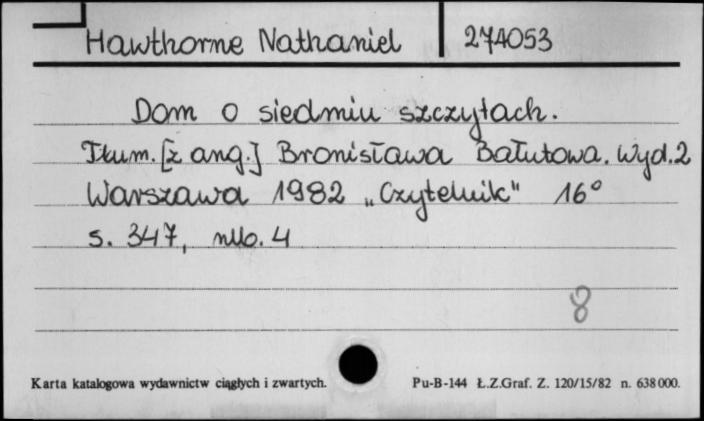 Hawthorne Nathaniel 274053
Dom o siedmiu szczytach.
Tłum. [z ang.] Bronisława Bałutowa. Wyd. 2
Warszawa 1982 „Czytelnik" 16°
s. 347, nlb. 4
8
Karta katalogowa wydawnictw ciągłych i zwartych. Pu-B-144 Ł.Z.Graf. Z. 120/15/82 n. 638000.